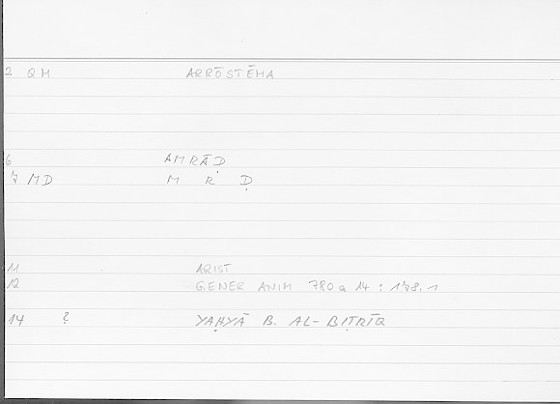 2 QM ARRŌSTĒMA
6 AMRĀḌ
7 MD M R Ḍ
11 ARIST
12 GENER ANIM 780 a 14 : 178,1
14 ? YAḤYĀ B. AL-BIṬRĪQ